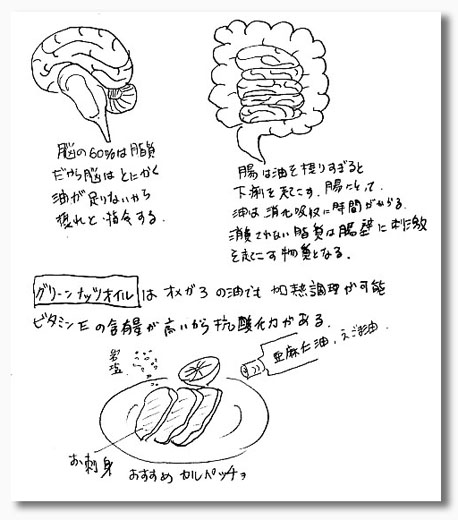 脳の60%は脂質
だから脳はとにかく
油が足りないから
摂れと指令する.
腸は油を摂りすぎると
下痢を起こす. 腸にとって.
油は消化吸収に時間がかかる.
消費されない脂質は腸壁に刺激
を起こす物質となる.
グリーンナッツオイル は オメガ3の油でも 加熱調理が可能
ビタミンEの含有量が高いから抗酸化力がある.
岩塩
亜麻仁油. えごま油.
お刺身
おすすめ カルパッチョ